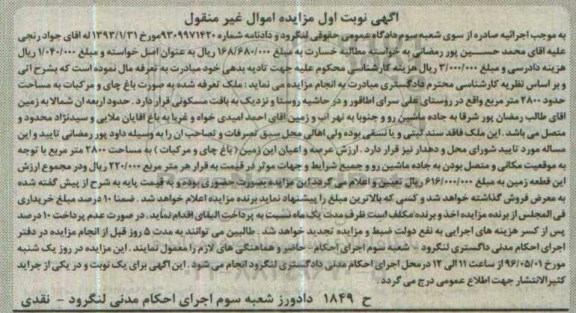 آگهی نوبت اول مزایده اموال غیر منقول
به موجب اجرائیه صادره از سوی شعبه سوم دادگاه عمومی حقوقی لنگرود و دادنامه شماره ۹۳۰۹۹۷۱۴۲۰ مورخ ۱۳۹۳/۱/۳۱ له آقای جواد رنجی
علیه آقای محمد حسین پور رمضانی به خواسته مطالبه خسارت به مبلغ ۱۶۸/۶۸۰/۰۰۰ ریال به عنوان اصل خواسته و مبلغ ۱/۰۴۰/۰۰۰ ریال
هزینه دادرسی و مبلغ ۳/۰۰۰/۰۰۰ ریال هزینه کارشناسی محکوم علیه جهت تادیه بدهی خود مبادرت به تعرفه مال نموده است که بشرح آتی
و بر اساس نظریه کارشناسی محترم دادگستری مبادرت به انجام مزایده می نماید : ملک تعرفه شده به صورت باغ چای و مرکبات به مساحت
حدود ۲۸۰۰ متر مربع واقع در روستای علی سرای اطاقور و در حاشیه روستا و نزدیک به بافت مسکونی قرار دارد . حدود اربعه آن شمالا به زمین
آقای طالب رمضان پور شرقا به جاده ماشین رو و جنوبا به نهر آب و زمین آقای احمد امیدی خواه و غربا به باغ آقایان ملایی و سیدنژاد محدود و
متصل می باشد . این ملک فاقد سند ثبتی و یا نسقی بوده ولی اهالی محل سبق تصرفات و تصاحب آن را به وسیله داود پور رمضانی تایید و این
مساله مورد تایید شورای محل و دهدار نیز قرار دارد . ارزش عرصه و اعیان این زمین ( باغ چای و مرکبات ) به مساحت ۲۸۰۰ متر مربع با توجه
به موقعیت مکانی و متصل بودن به جاده ماشین رو و جمیع شرایط و جهات موثر در قیمت به قرار هر متر مربع ۲۲۰/۰۰۰ ریال ودر مجموع ارزش
این قطعه زمین به مبلغ ۶۱۶/۰۰۰/۰۰۰ ریال تعیین و اعلام می گردد این مزایده بصورت حضوری بوده و به قیمت پایه به شرح از پیش گفته شده
به معرض فروش گذاشته خواهد شد و کسی که بالاترین مبلغ را پیشنهاد نماید برنده مزایده اعلام خواهد شد . ضمنا ۱۰ درصد مبلغ خریداری
فی المجلس از برنده مزایده اخذ و برنده مکلف است ظرف مدت یک ماه نسبت به پرداخت الباقی اقدام نماید . در صورت عدم پرداخت ۱۰ درصد
پس از کسر هزینه های اجرایی به نفع دولت ضبط و مزایده تجدید خواهد شد . طالبین می توانند به مدت ۵ روز قبل از انجام مزایده در دفتر
اجرای احکام مدنی دادگستری لنگرود - شعبه سوم اجرای احکام - حاضر و هماهنگی های لازم را معمول نمایند . این مزایده در روز یک شنبه
مورخ ۹۶/۰۵/۰۱ از ساعت ۱۱ الی ۱۲ در محل اجرای احکام مدنی دادگستری لنگرود انجام می شود . این آگهی برای یک نوبت و در یکی از جراید
کثیرالانتشار جهت اطلاع عمومی درج می گردد .
ح ۱۸۴۹ دادورز شعبه سوم اجرای احکام مدنی لنگرود - نقدی